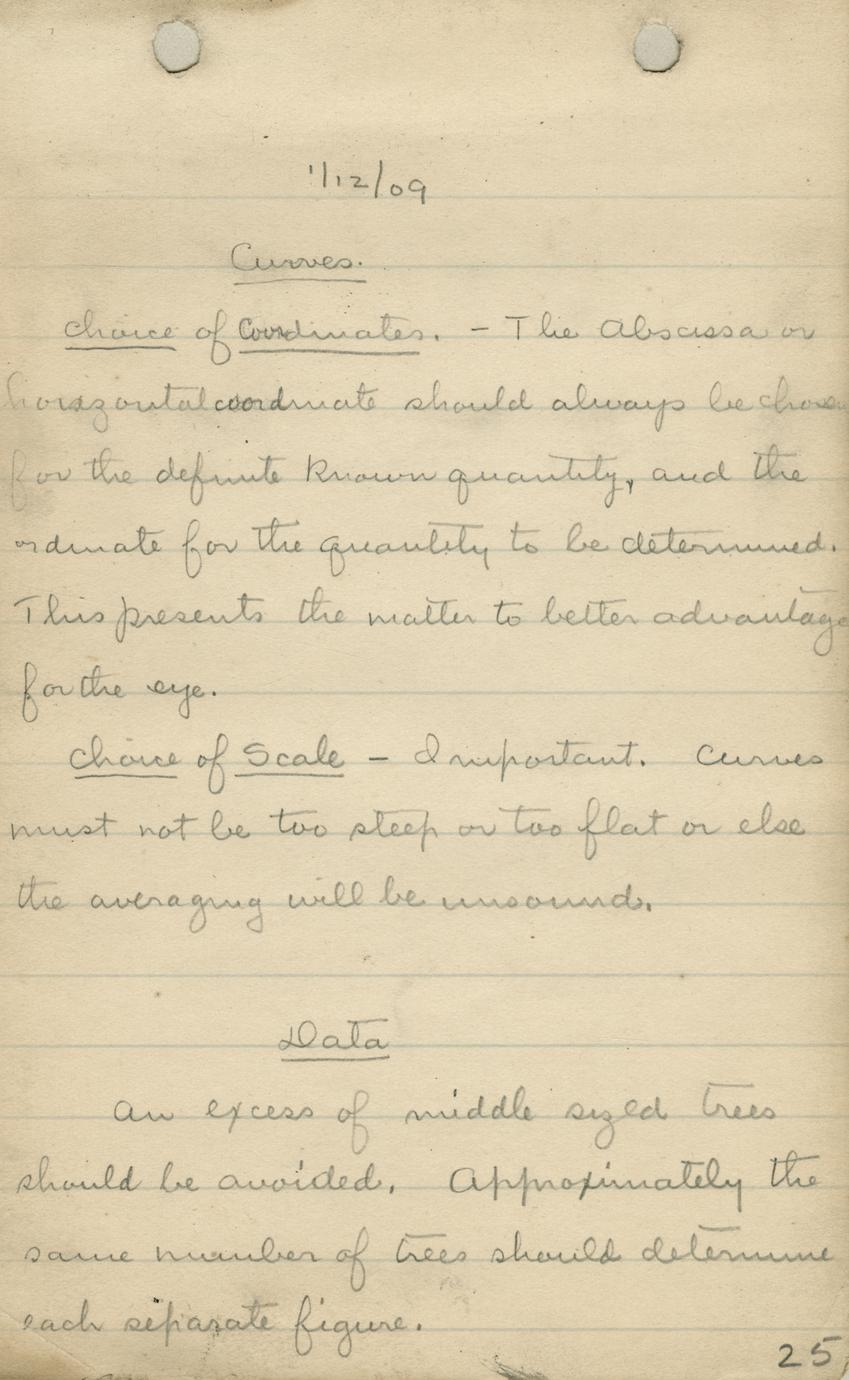 1/12/09
Curves.
Choice of Coordinates. - The Abscissa or
horizontal coordinate should always be chosen
for the definite known quantity, and the
ordinate for the quantity to be determined.
This presents the matter to better advantage
for the eye.
Choice of Scale - Important. Curves
must not be too steep or too flat or else
the averaging will be unsound.
Data
An excess of middle sized trees
should be avoided. Approximately the
same number of trees should determine
each separate figure.
25